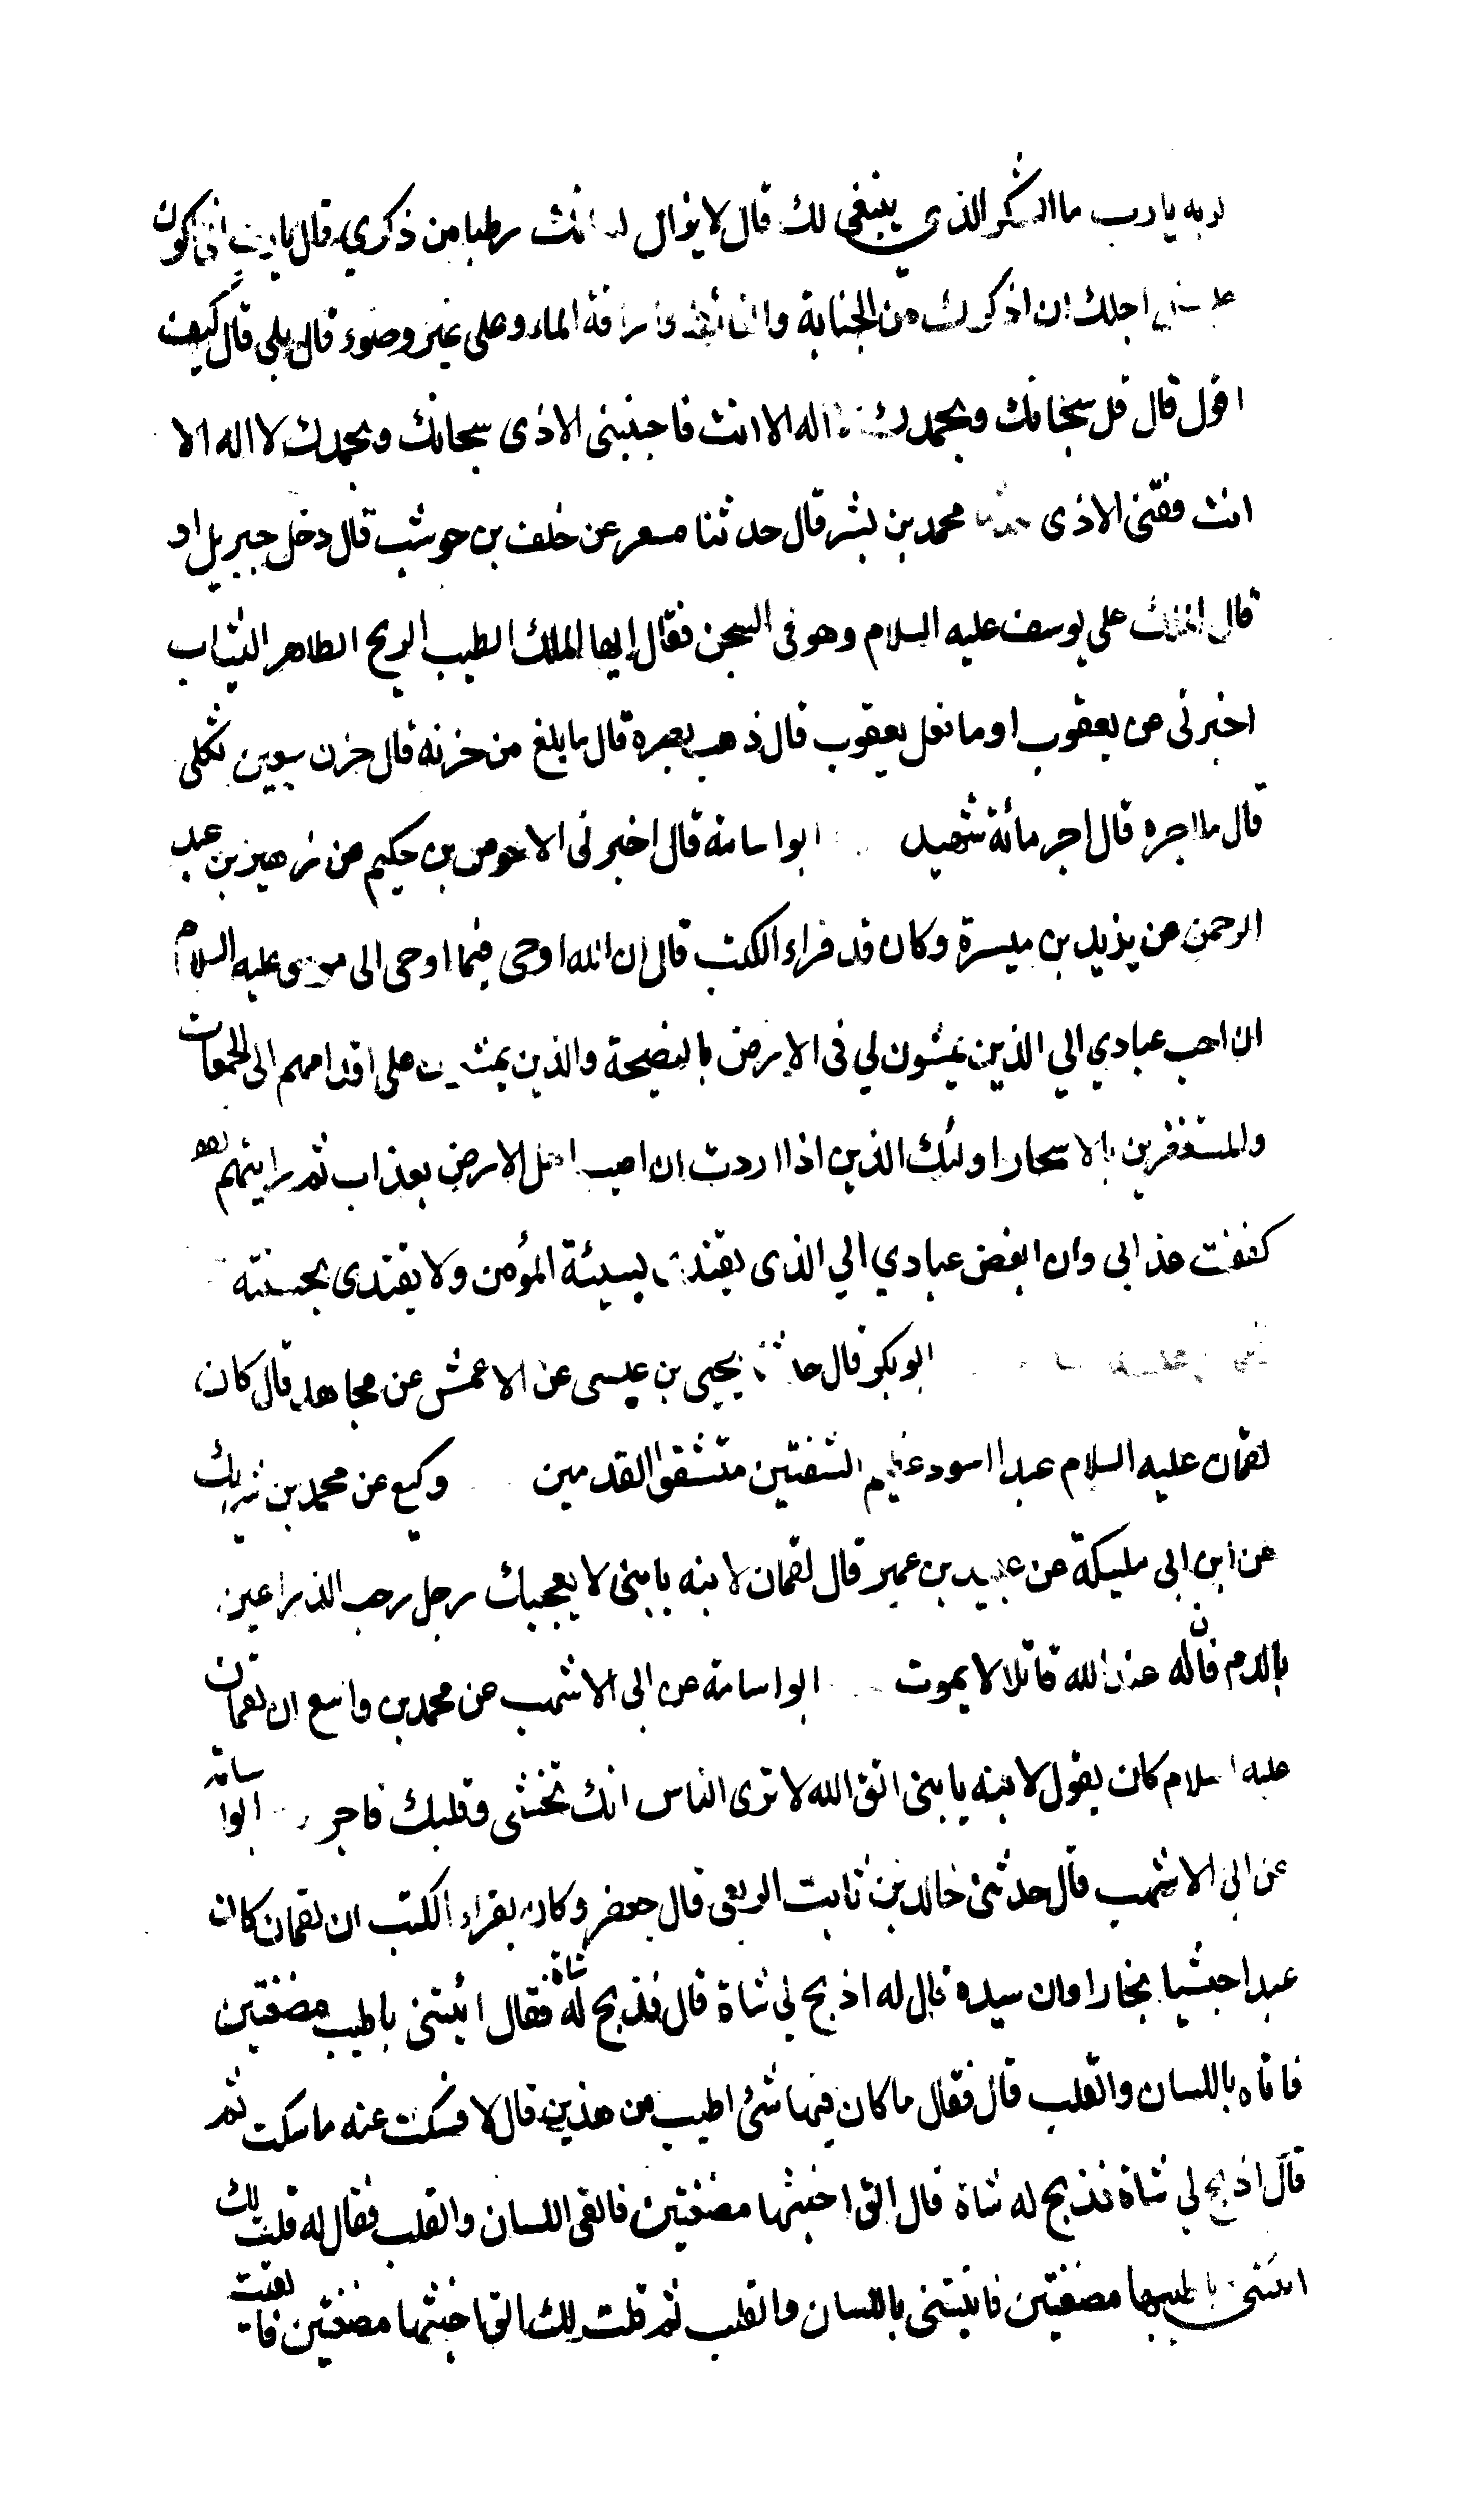 لربه يا رب ما الشكر الذي ينبغي لك قال لا يزال لسانك رطبا من ذكري قال يا رب اني اكون
اجلك ان اذكرك من الجنابة والغائط واراقة الماء وعلى غير وضوء قال بلى قال كيف
اقول قال قل سبحانك وبحمدك لا اله الا انت فاجنبني الاذى سبحانك وبحمدك لا اله الا
انت فقني الاذى حدثنا محمد بن بشر قال حدثنا مسعر عن خلف بن حوشب قال دخل جبريل او
قال الملك على يوسف عليه السلام وهو في السجن فقال ايها الملك الطيب الريح الطاهر الثياب
اخبرني عن يعقوب او ما فعل يعقوب قال ذهب بصره قال ما بلغ من حزنه قال حزن سبعين ثكلى
قال ما اجره قال اجر مائة شهيد ابو اسامة قال اخبرني الاحوص بن حكيم عن زهير بن عبد
الرحمن عن يزيد بن ميسرة وكان قد قراء الكتب قال ان الله اوحى فيما اوحى الى موسى عليه السلام
ان احب عبادي الي الذين يمشون لي في الارض بالنصيحة والذين يمشون على اقدامهم الى الجمعات
والمستغفرين بالاسحار اولئك الذين اذا اردت ان اصيب اهل الارض بعذاب ثم رايتهم
كففت عذابي وان ابغض عبادي الي الذى يقتدى بسيئة المؤمن ولا يقتدى بحسنته
ابو بكر قال حدثنا يحيى بن عيسى عن الاعمش عن مجاهد قال كان
لقمان عليه السلام عبدا اسود عظيم الشفتين متشقق القدمين وكيع عن محمد بن شريك
عن ابن ابي مليكة عن عبيد بن عمير قال لقمان لابنه يا بني لا يعجبك رجل رحب الذراعين
بالدم فان له عند الله قاتلا لا يموت ابو اسامة عن ابى الاشهب عن محمد بن واسع ان لقمان
عليه السلام كان يقول لابنه يا بنى اتق الله لا ترى الناس انك تخشى وقلبك فاجر ابو اسامة
عن ابى الاشهب قال حدثنى خالد بن ثابت الربعى قال جعفر وكان يقراء الكتب ان لقمان كان
عبدا حبشيا نجارا وان سيده قال له اذبح لي شاة قال فذبح له شاة فقال ائتنى باطيب مضغتين
فاتاه باللسان والقلب قال فقال ما كان فيها شئ اطيب من هذين قال لا فسكت عنه ما سكت ثم
قال اذبح لي شاة فذبح له شاة قال الق اخبثها مضغتين فالقى اللسان والقلب فقال له قلت لك
ائتني باطيبها مضغتين فاتيتنى باللسان والقلب ثم قلت لك الق اخبثها مضغتين فالقيت